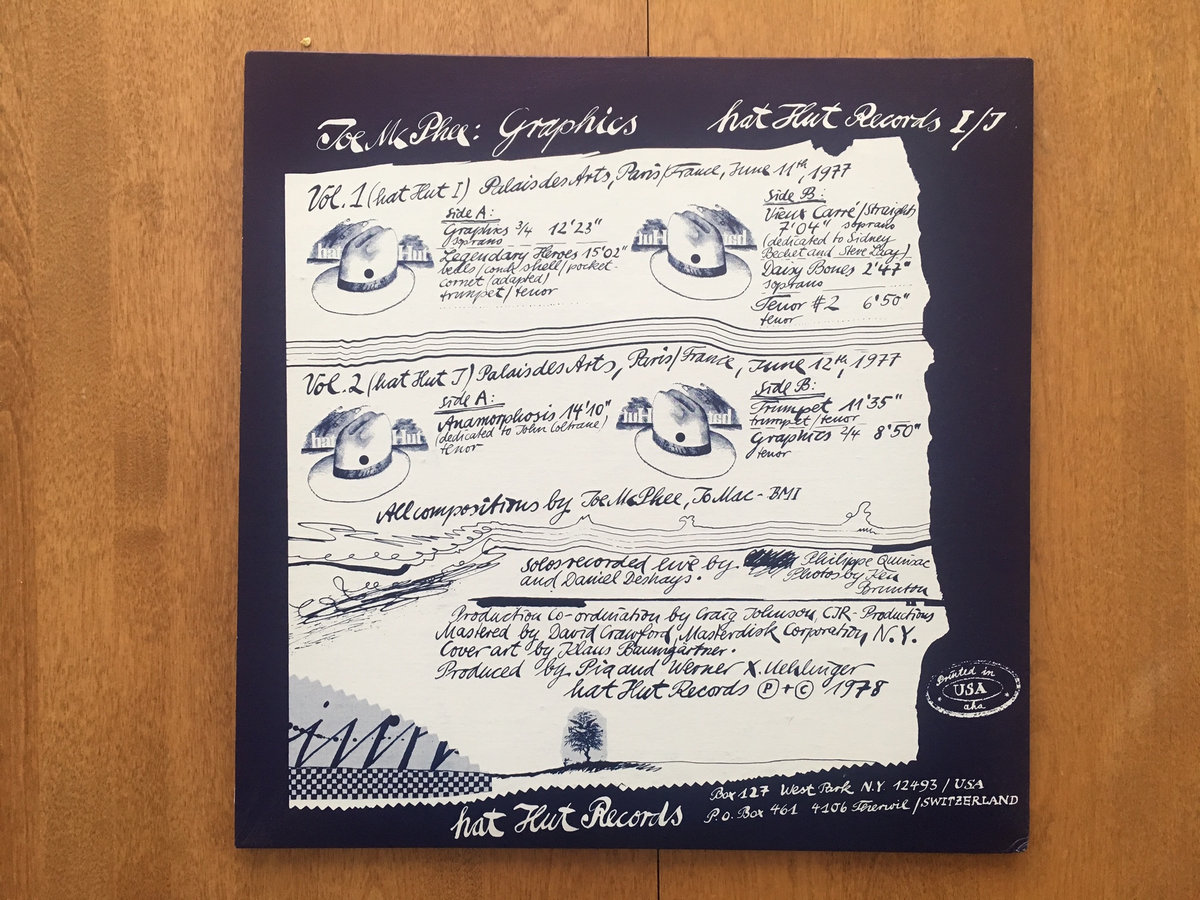 Joe McPhee: Graphics
hat Hut Records I/J
Vol. 1 (hat Hut I) Palais des Arts, Paris/France, June 11th, 1977
Side A:
Graphics 3/4 12'23"
soprano
Legendary Heroes 15'02"
bells/conch shell/pocket-
cornet (adapted)
trumpet/tenor
hat Hut
Side B:
Vieux Carré/Straight
7'04" soprano
(dedicated to Sidney
Bechet and Steve Lacy)
Daisy Bones 2'47"
soprano
Tenor #2 6'50"
tenor
hat Hut
Vol. 2 (hat Hut J) Palais des Arts, Paris/France, June 12th, 1977
Side A:
Anamorphosis 14'10"
(dedicated to John Coltrane)
tenor
hat Hut
Side B:
Trumpet 11'35"
trumpet/tenor
Graphics 2/4 8'50"
tenor
hat Hut
All compositions by Joe McPhee, Jo Mac - BMI
Solos recorded live by Philippe Quinsac
and Daniel Deshays.
Photos by Ken
Brunton
Production Co-ordination by Craig Johnson, CJR-Productions
Mastered by David Crawford, Masterdisk Corporation, N.Y.
Cover art by Klaus Baumgärtner.
Produced by Pia and Werner X. Uehlinger
hat Hut Records Ⓟ+© 1978
Printed in
USA
aha
hat Hut Records
Box 127 West Park N.Y. 12493/USA
P.O. Box 461 4106 Therwil/SWITZERLAND